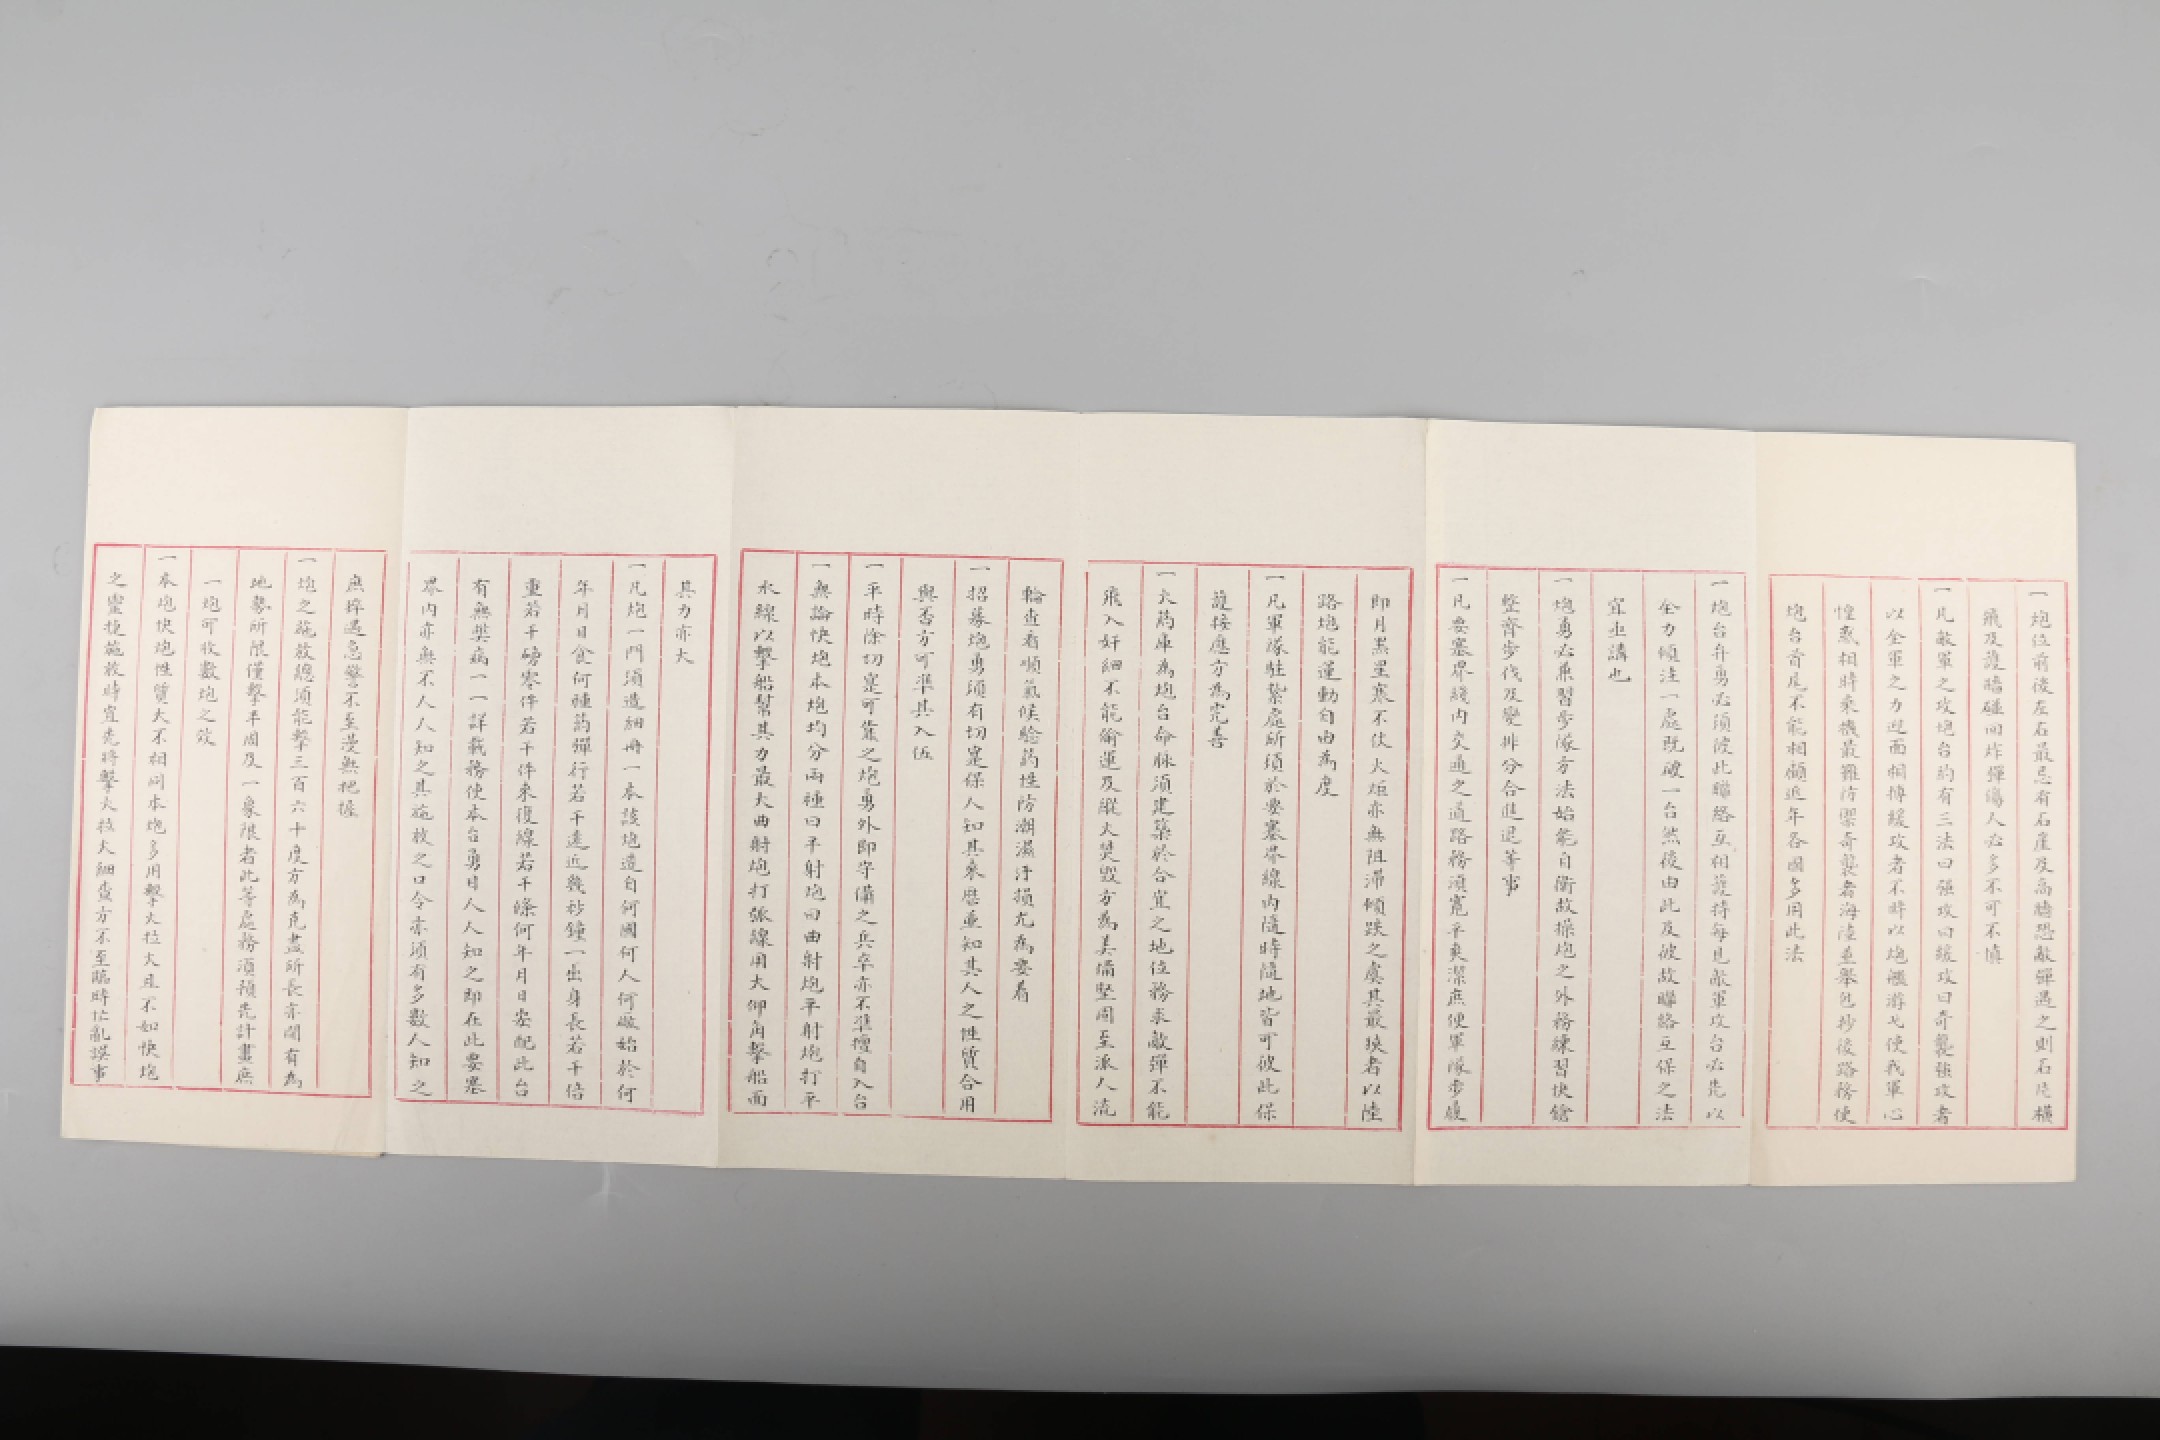 一炮位前後左右最忌有石崖及高牆恐敵彈遇之則石片橫
飛及護牆碰回炸彈傷人必多不可不慎
一凡敵軍之攻炮台約有三法曰強攻曰緩攻曰奇襲強攻者
以全軍之力迎面相搏緩攻者不時以炮艦游弋使我軍心
惶惑相時乘機最難防禦奇襲者海陸並舉包抄後路務使
炮台首尾不能相顧近年各國多用此法
一炮台弁勇必須彼此聯絡互相護持每見敵軍攻台必先以
全力傾注一處既破一台然後由此及彼故聯絡互保之法
宜亟講也
一炮勇必兼習步隊方法始能自衛故操炮之外務練習快鎗
整齊步伐及變排分合進退等事
一凡要塞界綫內交通之道路務須寬平爽潔庶便軍隊步履
即月黑星寒不仗火炬亦無阻滯傾跌之虞其最狹者以陸
路炮能運動自由為度
一凡軍隊駐紮處所須於要塞界線內隨時隨地皆可彼此保
護接應方為完善
一火葯庫為炮台命脉須建築於合宜之地位務求敵彈不能
飛入奸細不能偷運及縱火焚毀方為美備堅固至派人流
輪查看順氣候驗葯性防潮濕汙損尤為要着
一招募炮勇須有切寔保人知其來歷並知其人之性質合用
與否方可準其入伍
一平時除切寔可靠之炮勇外即守備之兵卒亦不準擅自入台
一無論快炮本炮均分兩種曰平射炮曰曲射炮平射炮打平
水線以擊船幫其力最大曲射炮打弧線用大仰角擊船面
其力亦大
一凡炮一門須造細冊一本該炮造自何國何人何廠始於何
年月日食何種葯彈行若干遠近幾秒鐘一出身長若干倍
重若干磅零件若干件來復線若干條何年月日安配此台
有無弊病一一詳載務使本台勇目人人知之即在此要塞
界內亦無不人人知之其施放之口令亦須有多數人知之
庶猝遇急警不至漫無把握
一炮之施放總須能擊三百六十度方為克盡所長亦間有為
地勢所限僅擊半周及一象限者此等處務須預先計畫庶
一炮可收數炮之效
一本炮快炮性質大不相同本炮多用擊火拉火且不如快炮
之靈捷施放時宜先將擊火拉火細查方不至臨時忙亂誤事